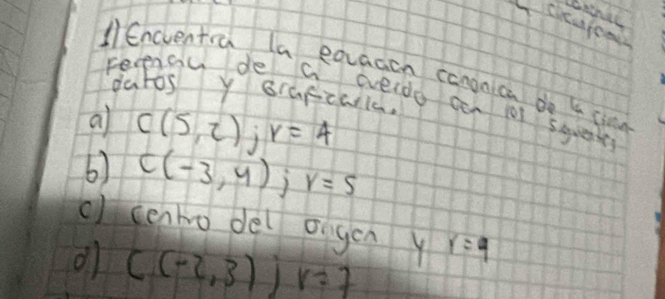 1) Encuentra la ecuación canonica de la circun
ferencia de a cuerdo con los siguientes
datos y graficarla.
a) C(5,2); r = 4
b) C(-3,4); r = 5
c) centro del origen y r=9
d) C(-2,3); r=7